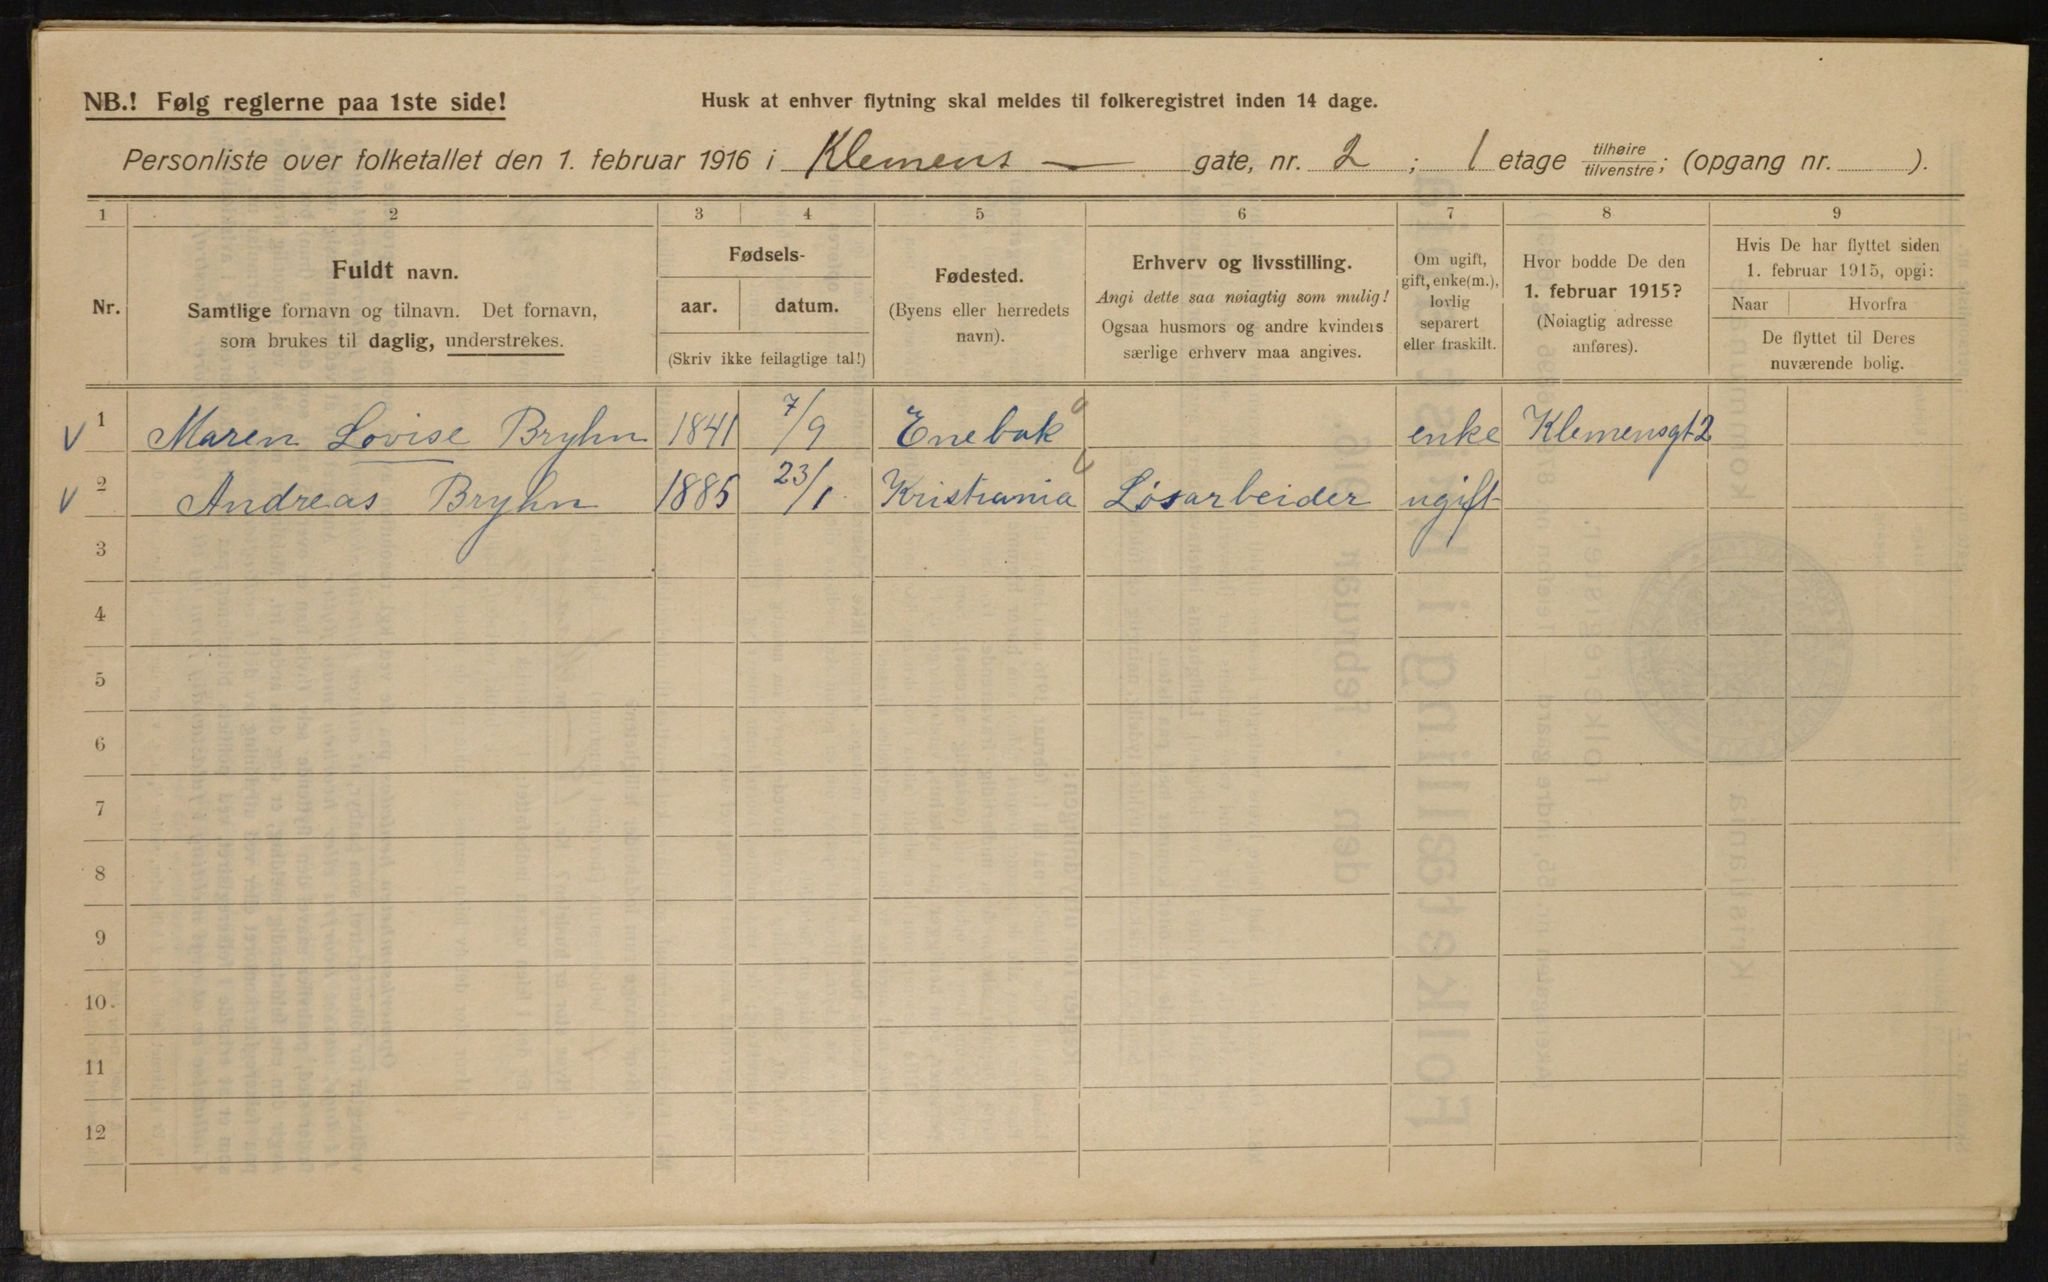 NB.! Følg reglerne paa 1ste side!
Husk at enhver flytning skal meldes til folkeregistret inden 14 dage.
Personliste over folketallet den 1. februar 1916 i Klemens — gate, nr. 2 ; 1 etage tilhøire/tilvenstre; (opgang nr. ).
1 2 3 4 5 6 7 8 9
Nr.
Fuldt navn.
Samtlige fornavn og tilnavn. Det fornavn,
som brukes til daglig, understrekes.
Fødsels-
aar. datum.
(Skriv ikke feilagtige tal!)
Fødested.
(Byens eller herredets
navn).
Erhverv og livsstilling.
Angi dette saa nøiagtig som mulig!
Ogsaa husmors og andre kvinders
særlige erhverv maa angives.
Om ugift,
gift, enke(m.),
lovlig
separert
eller fraskilt.
Hvor bodde De den
1. februar 1915?
(Nøiagtig adresse
anføres).
Hvis De har flyttet siden
1. februar 1915, opgi:
Naar Hvorfra
De flyttet til Deres
nuværende bolig.
V 1 Maren Lovise Bryhn 1841 7/9 Enebak enke Klemensgt 2
V 2 Andreas Bryhn 1885 23/1 Kristiania Løsarbeider ugift
3
4
5
6
7
8
9
10
11
12